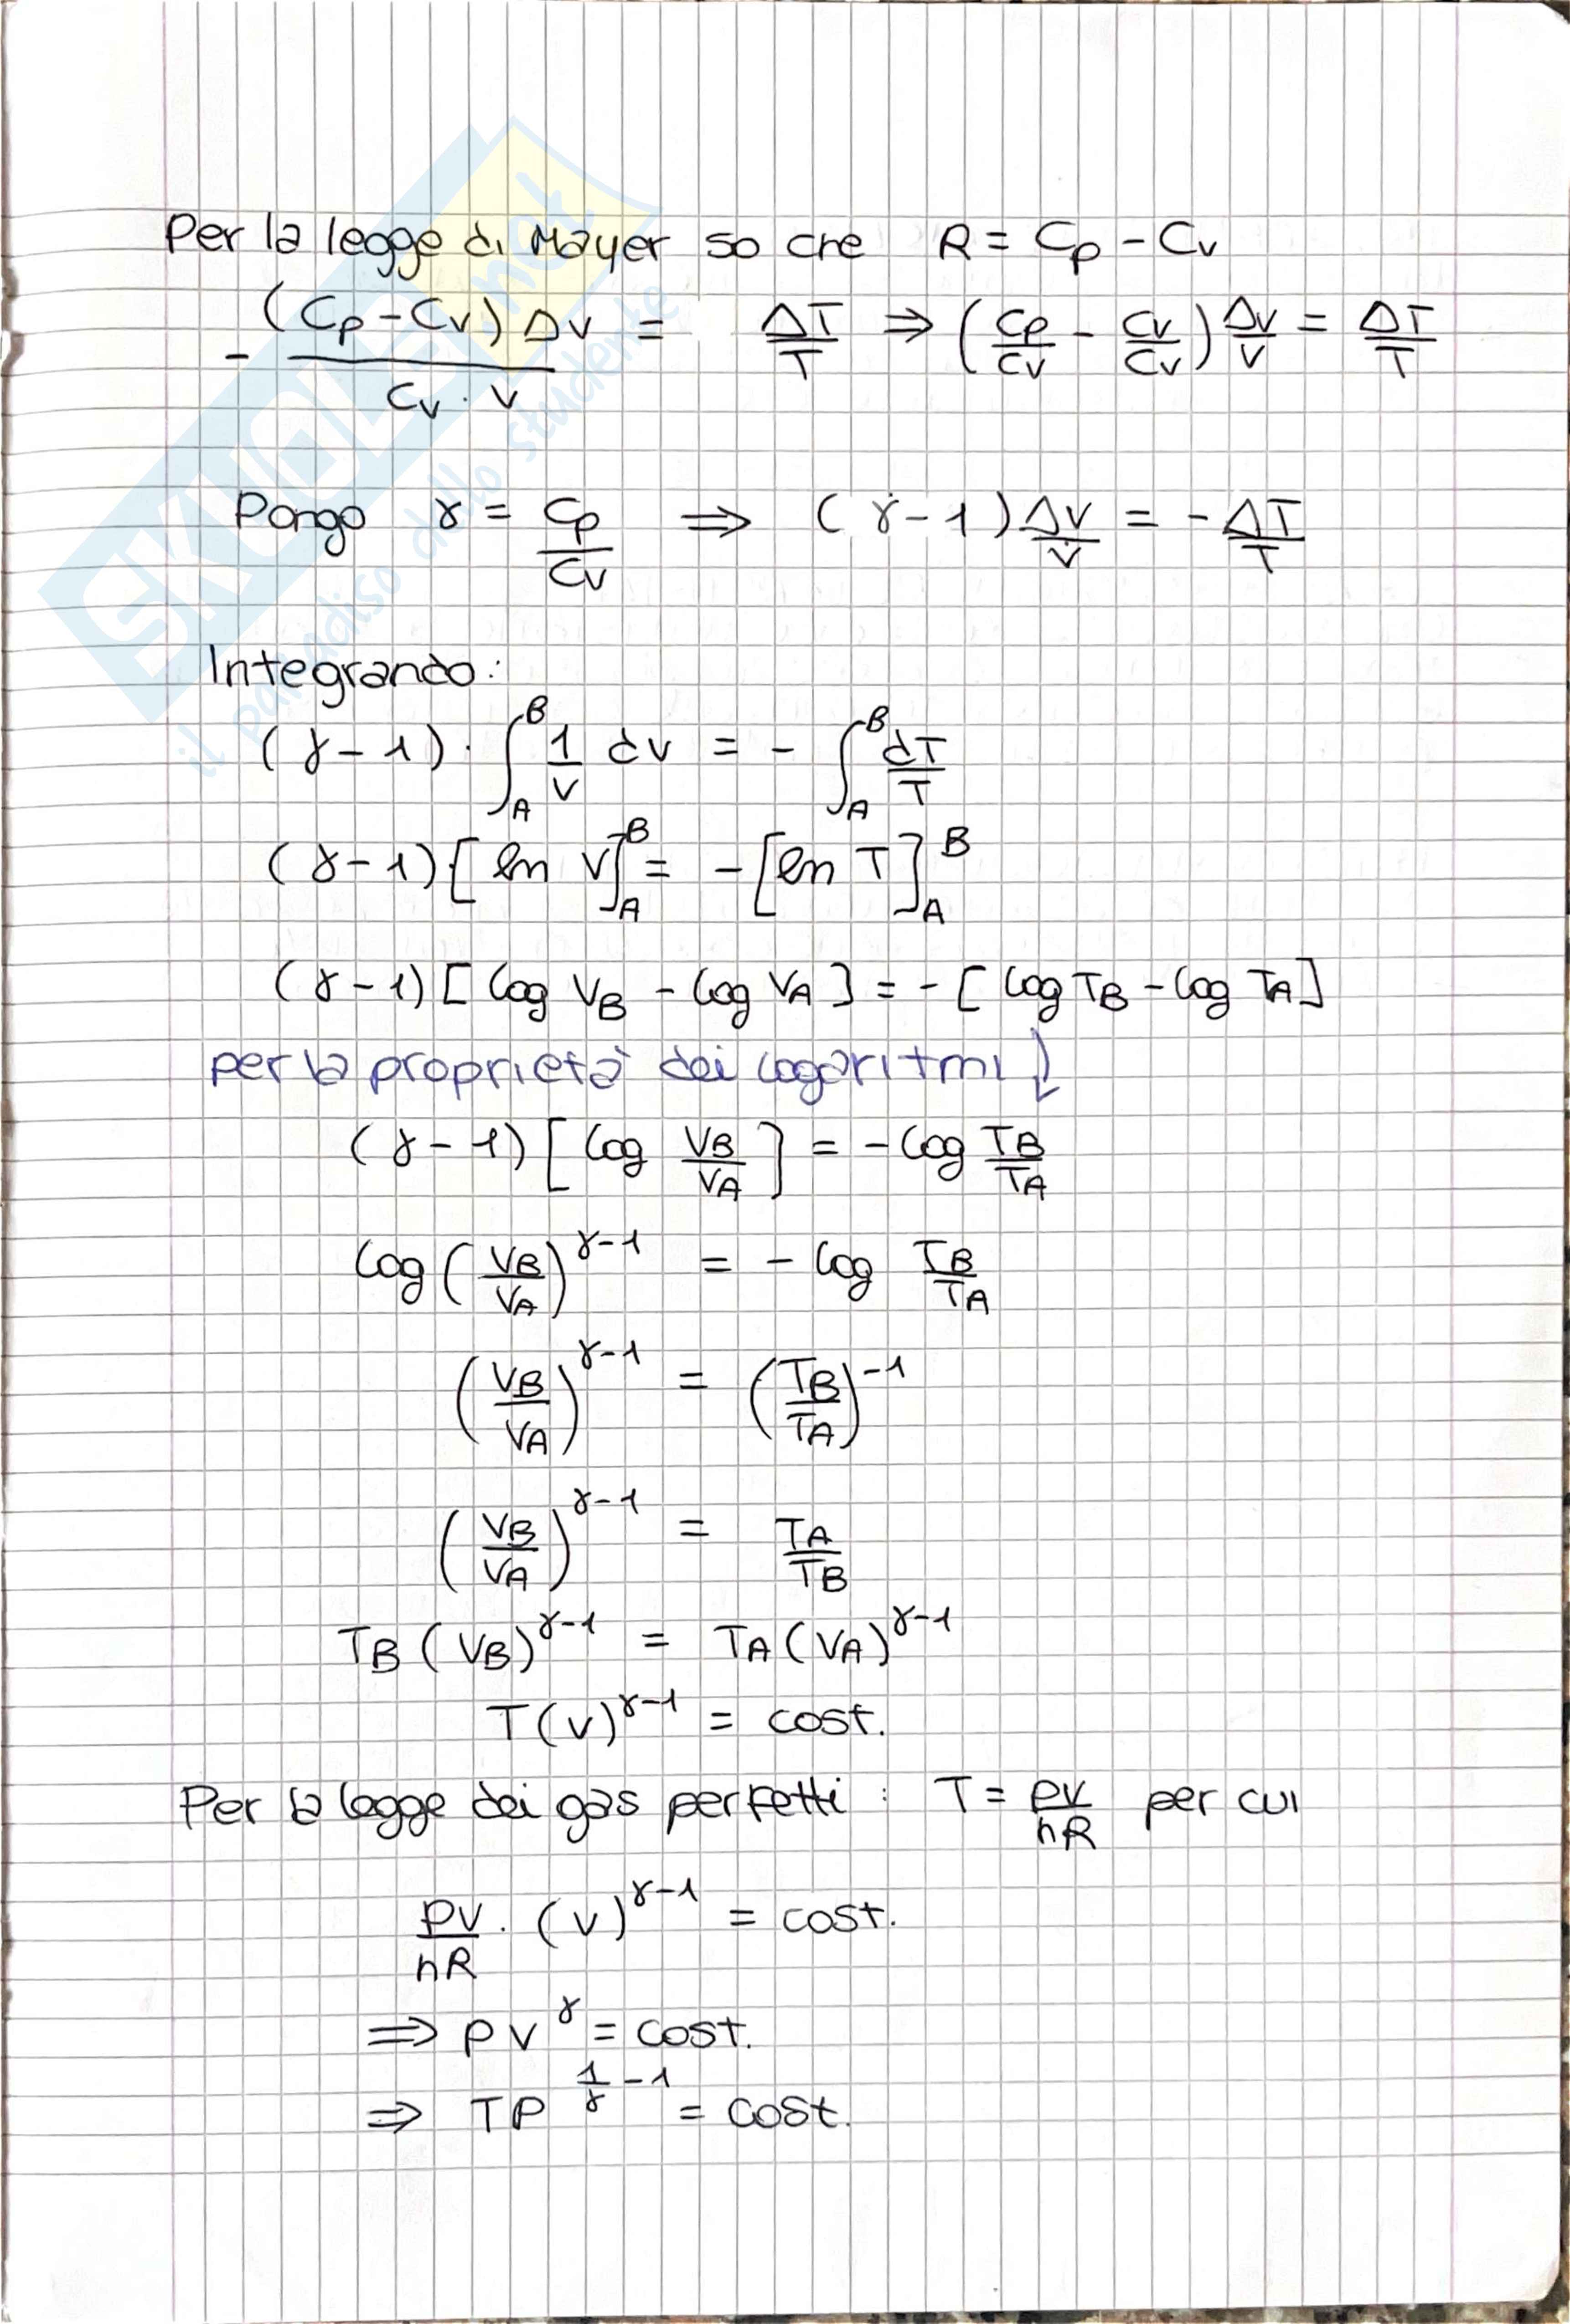 Per la legge di Mayer so che R = Cp - Cv
- (Cp - Cv) ΔV / Cv · V = ΔT/T ⇒ (Cp/Cv - Cv/Cv) ΔV/V = ΔT/T
Pongo γ = Cp/Cv ⇒ (γ - 1) ΔV/V = - ΔT/T
Integrando:
(γ - 1) · ∫_A^B 1/V dV = - ∫_A^B dT/T
(γ - 1) [ln V]_A^B = - [ln T]_A^B
(γ - 1) [log VB - log VA] = - [log TB - log TA]
per la proprietà dei logaritmi ↓
(γ - 1) [log VB/VA] = - log TB/TA
log (VB/VA)^γ-1 = - log TB/TA
(VB/VA)^γ-1 = (TB/TA)^-1
(VB/VA)^γ-1 = TA/TB
TB (VB)^γ-1 = TA (VA)^γ-1
T(V)^γ-1 = cost.
Per la legge dei gas perfetti : T = PV/nR per cui
PV/nR · (V)^γ-1 = cost.
⇒ PV^γ = cost.
⇒ TP^1/γ - 1 = cost.
SKUOLA.net
il paradiso dello studente